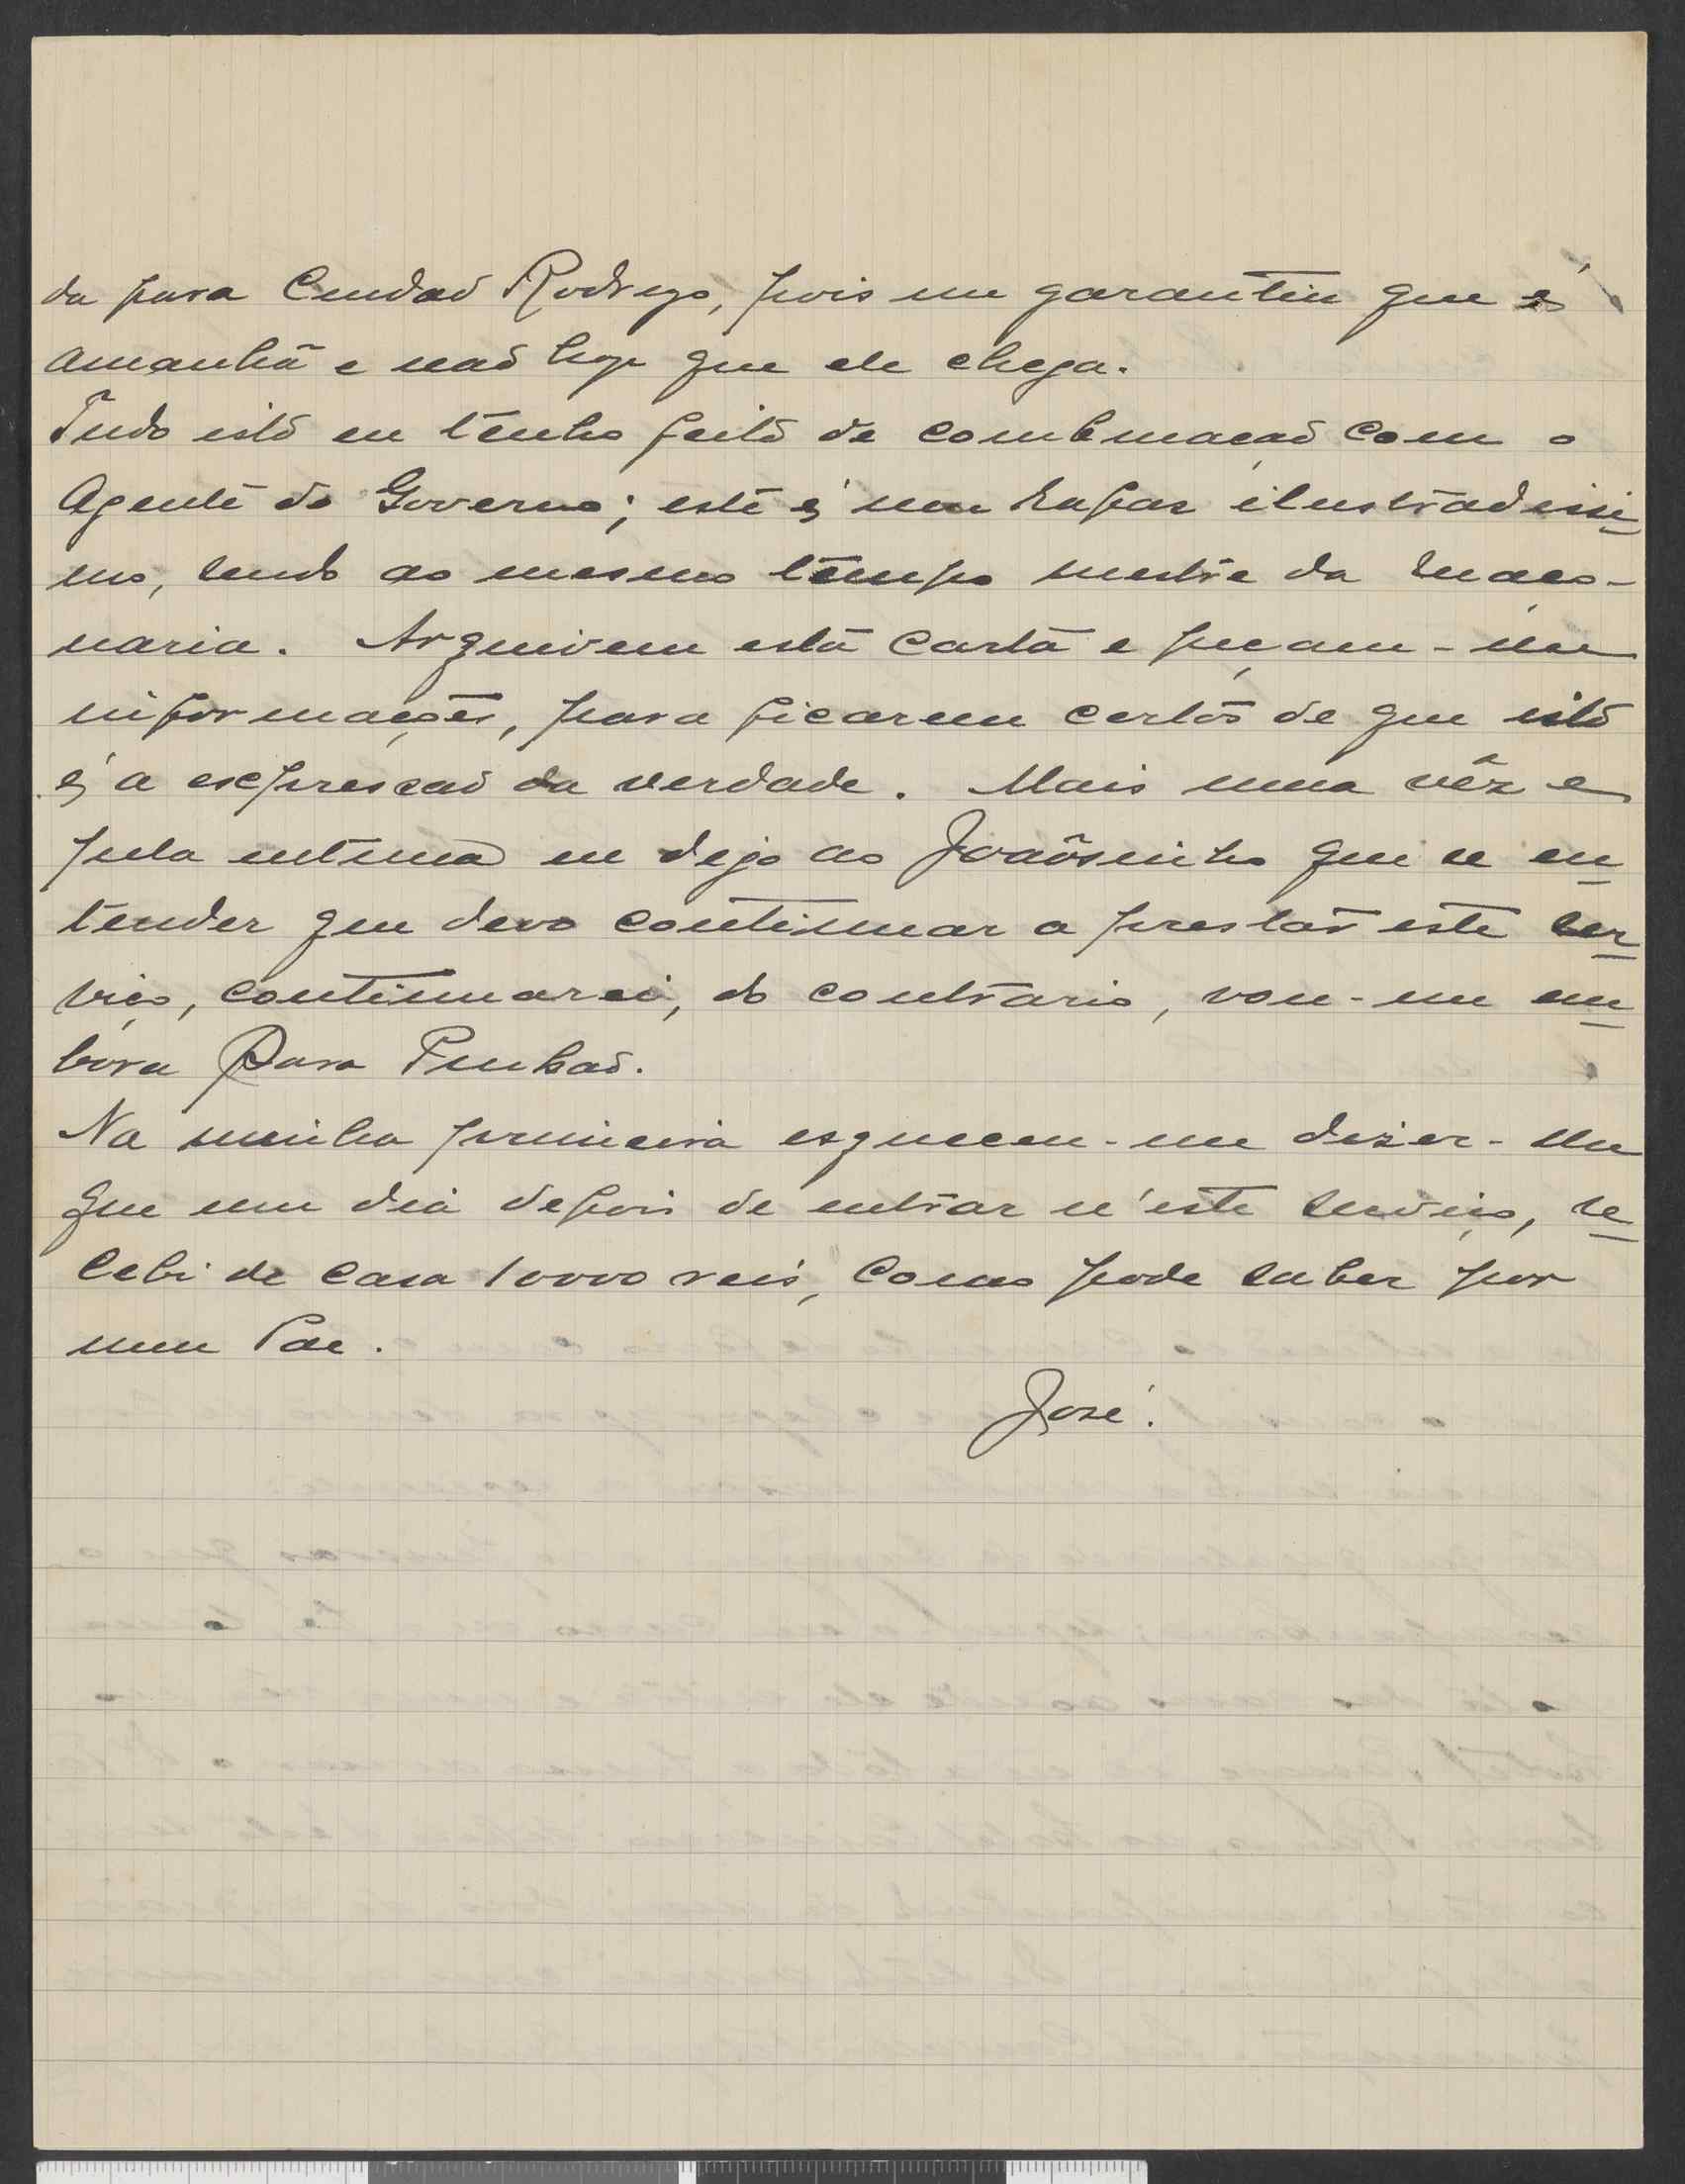 da para Ciudad Rodrigo, pois me garantiu que é
amanhã e não hoje que ele chega.
Tudo isto eu tenho feito de combinação com o
Agente do Governo; este é um rapaz ilustradissi-
mo, sendo ao mesmo tempo mestre da maço-
naria. Arquivem esta carta e peçam-me
informações, para ficarem certos de que isto
é a expressão da verdade. Mais uma vêz e
pela ultima eu digo ao Joãosinho que se en-
tender que devo continuar a prestar este ser-
viço, continuarei, do contrario, vou-me em-
bora Para Pinhão.
Na minha primeira esqueceu-me dizer-lhe
que um dia depois de entrar n'este serviço, re-
cebi de casa 10000 reis, como pode saber por
meu Pae.
José.